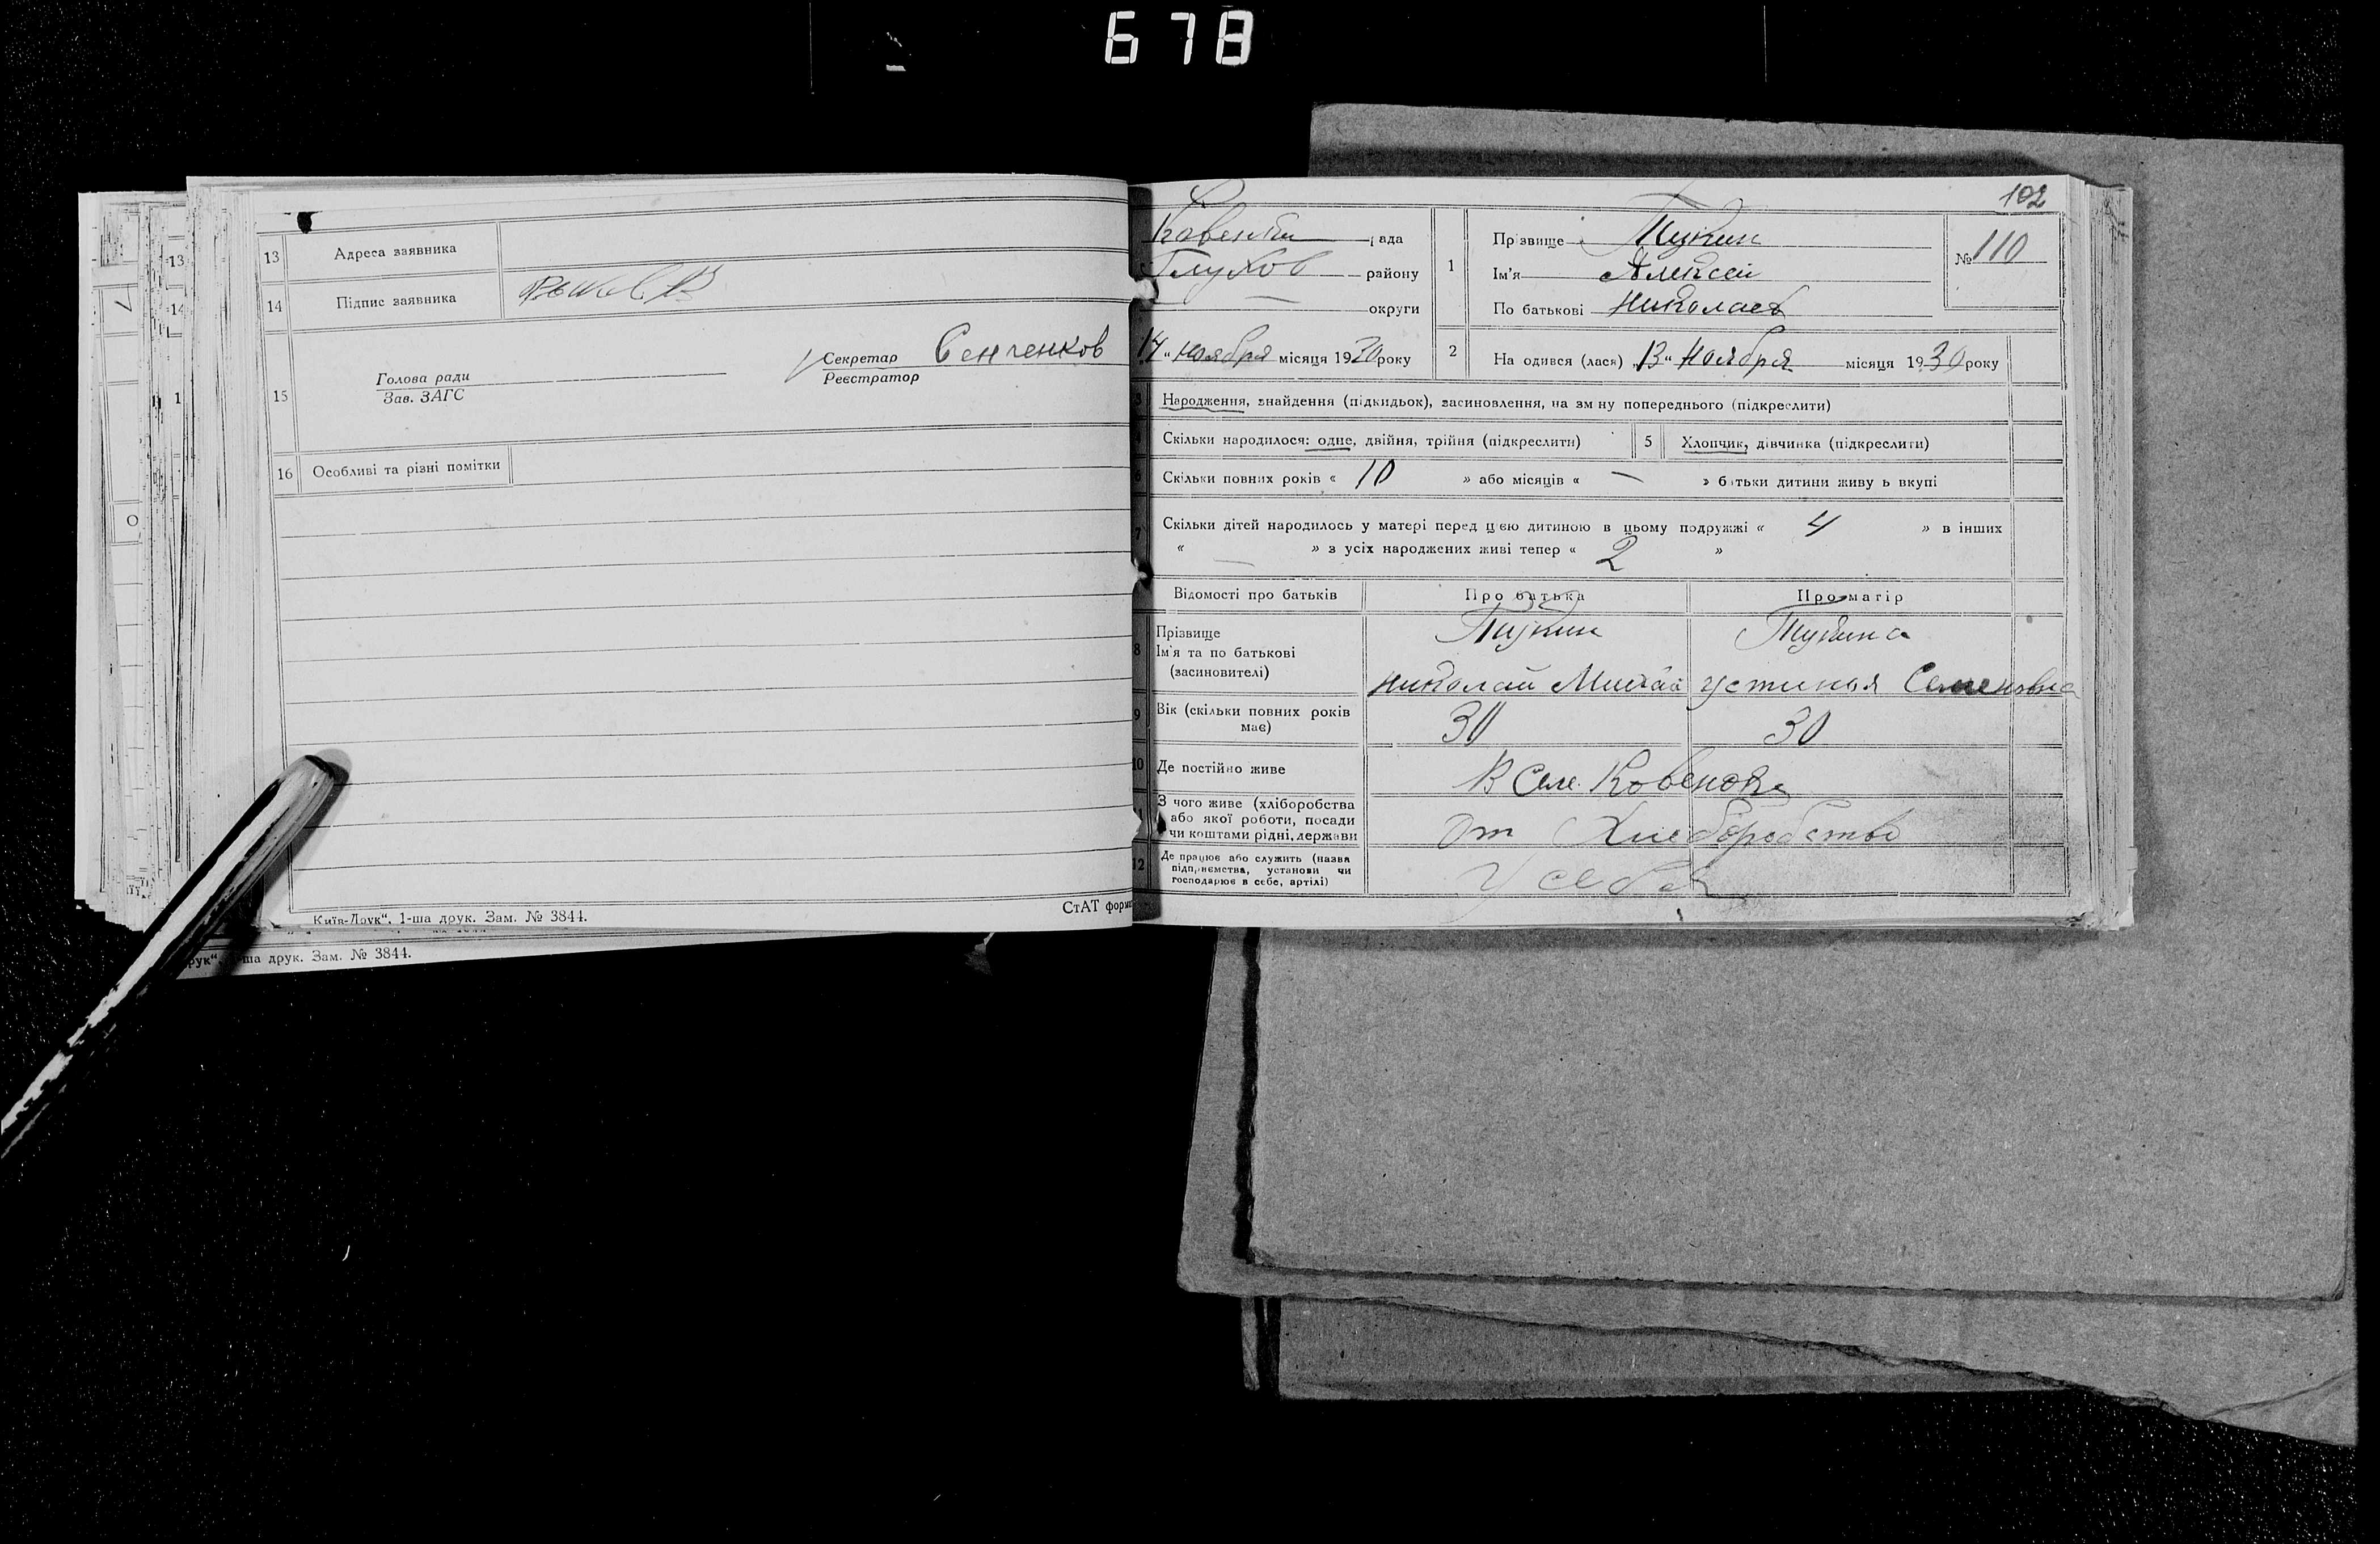 678
13 Адреса заявника
14 Підпис заявника
15 Голова ради
Зав. ЗАГС
Секретар Сенченков
Реєстратор
16 Особливі та різні помітки
Київ-Друк“, 1-ша друк. Зам. № 3844.
СтАТ форма
рук“, 1-ша друк. Зам. № 3844.
102
рада
Глухов району
округи
14 “ ноября місяця 1930 року
1 Прізвище
Ім'я Алексей
По батькові Николаев
№ 110
2 На одився (лася) „13“ Ноября місяця 1930 року
3 Народження, знайдення (підкидьок), засиновлення, на зм ну попереднього (підкреслити)
4 Скільки народилося: одне, двійня, трійня (підкреслити)
5 Хлопчик, дівчинка (підкреслити)
6 Скільки повних років « 10 » або місяців « — » батьки дитини живу ь вкупі
7 Скільки дітей народилось у матері перед цією дитиною в цьому подружжі « 4 » в інших
« — » з усіх народжених живі тепер « 2 »
Відомості про батьків
Про батька
Про матір
8 Прізвище
Ім'я та по батькові
(засиновителі)
николай Михай
устиния Семеновна
9 Вік (скільки повних років
має)
30
30
10 Де постійно живе
В селе
11 З чого живе (хліборобства
або якої роботи, посади
чи коштами рідні, держави
От Хлеборобство
12 Де працює або служить (назва
підприємства, установи чи
господарює в себе, артілі)
У себя